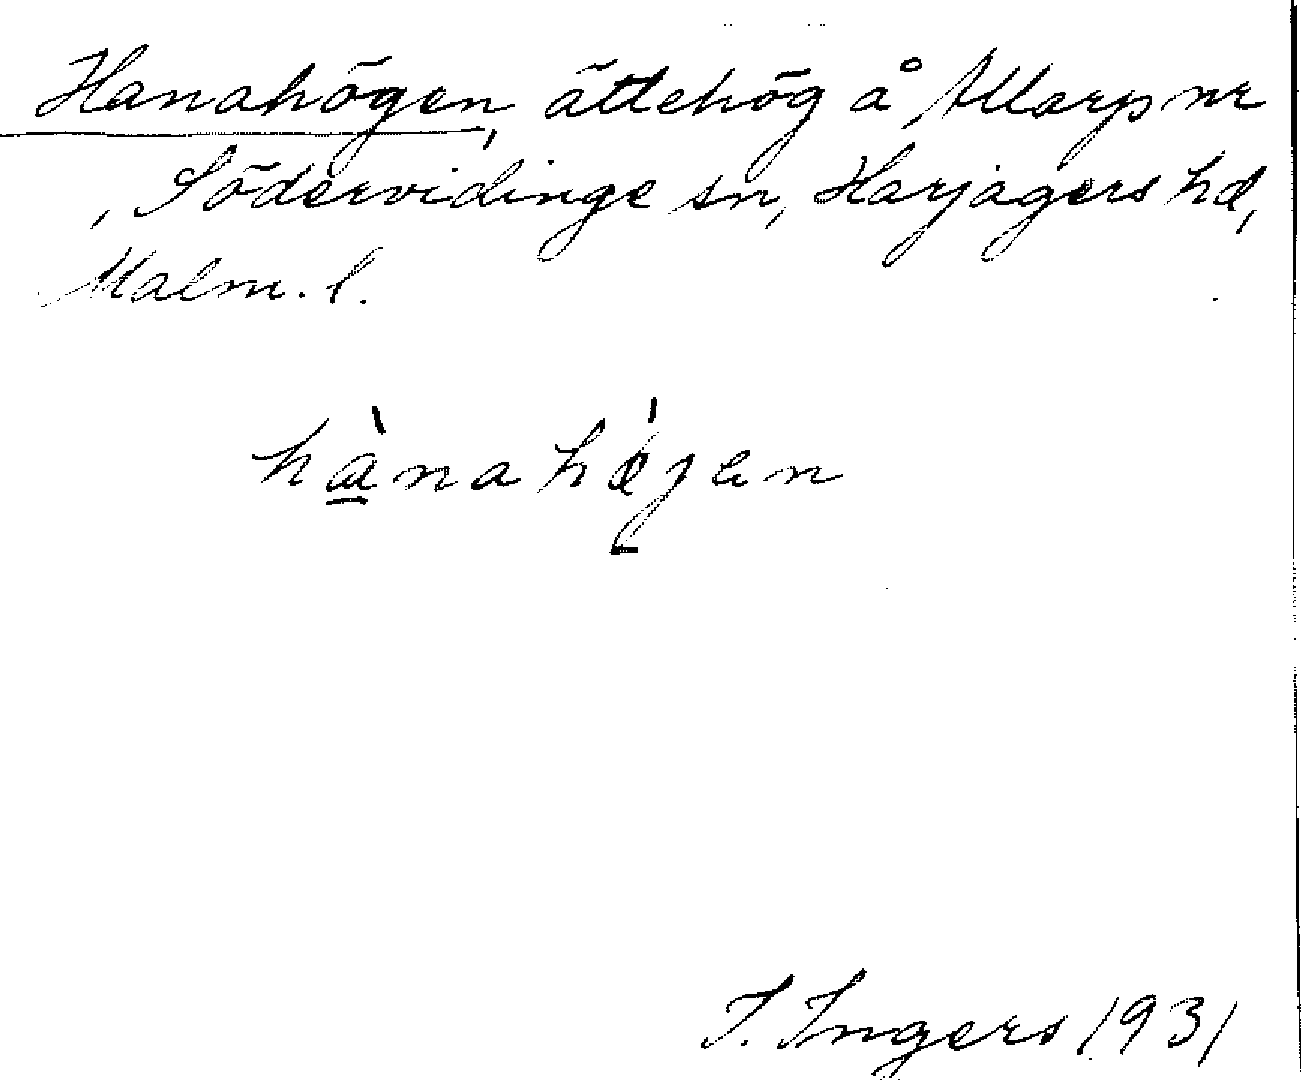 Hanahögen, ättehög å Allarps nr
, Södervidinge sn, Harjagers hd,
Malm. l.
hànahǿjen
I. Ingers 1931